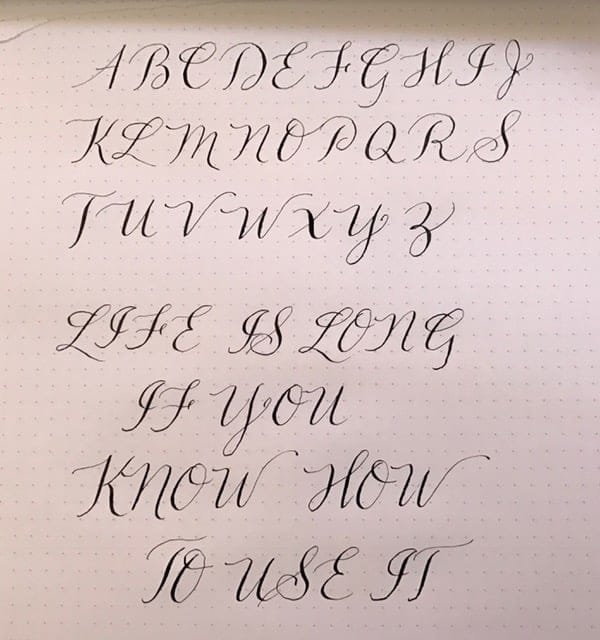 A B C D E F G H I J
K L M N O P Q R S
T U V W X Y Z
LIFE IS LONG
IF YOU
KNOW HOW
TO USE IT